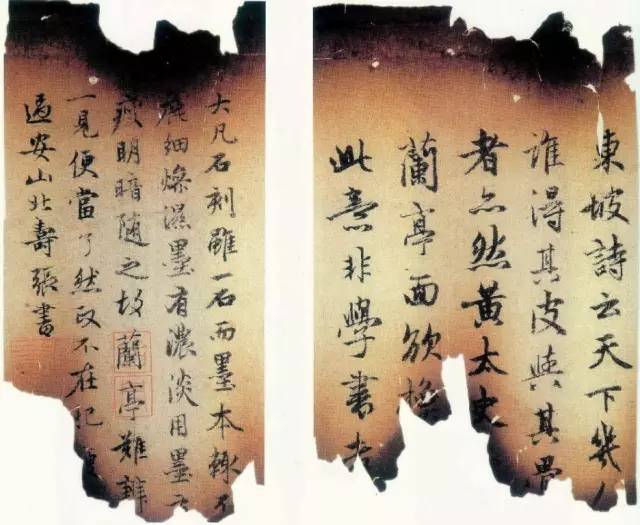 東坡詩云天下幾人
誰得其皮與其骨
者亦然黃太史
蘭亭面欲換
此意非學書者
大凡石刻雖一石而墨本輒不
麁細燥濕墨有濃淡用墨有
瘦明暗随之故蘭亭難辨
一見便當了然政不在肥
過安山北壽張書